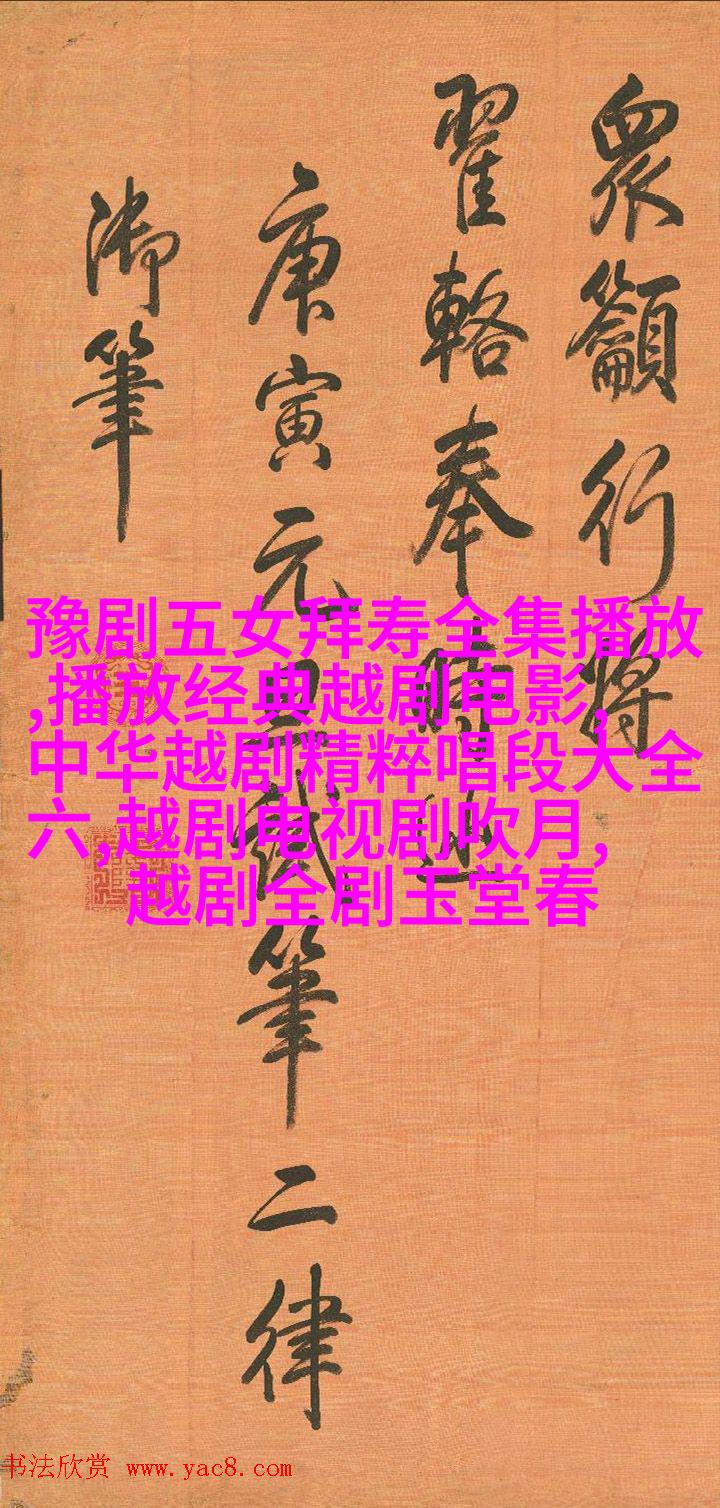 眾籲行將
翟輅奉時巡
庚寅元旦試筆二律
御筆
豫剧五女拜寿全集播放
,播放经典越剧电影,
中华越剧精粹唱段大全
六,越剧电视剧吹月,
越剧全剧玉堂春
书法欣赏 www.yac8.com